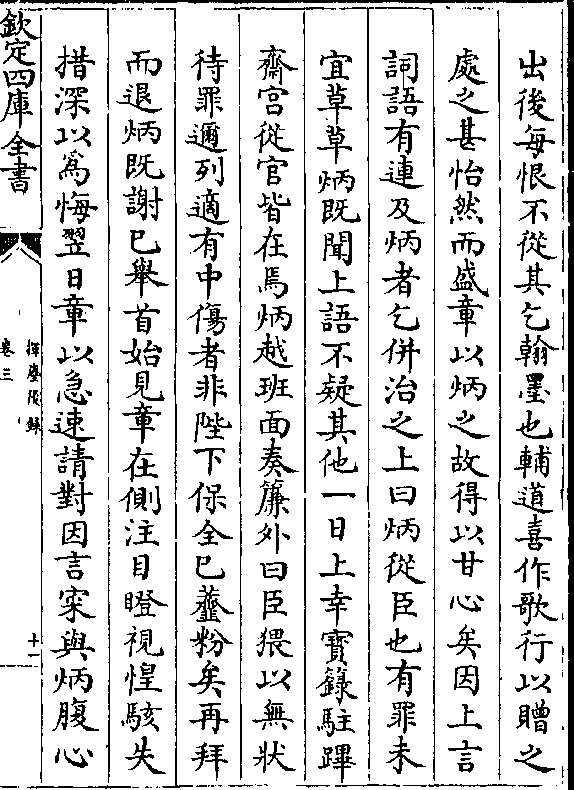 出後每恨不從其乞翰墨也輔道喜作歌行以贈之
處之甚怡然而盛章以炳之故得以甘心矣因上言
詞語有連及炳者乞併治之上曰炳從臣也有罪未
宜草草炳既聞上語不疑其他一日上幸寶籙駐蹕
齋宮從官皆在焉炳越班面奏簾外曰臣猥以無狀
待罪邇列適有中傷者非陛下保全已虀粉矣再拜
而退炳既謝已舉首始見章在側注目瞪視惶駭失
措深以為悔翌日章以急速請對因言寀與炳腹心
欽定四庫全書
揮麈後錄
卷三
十一